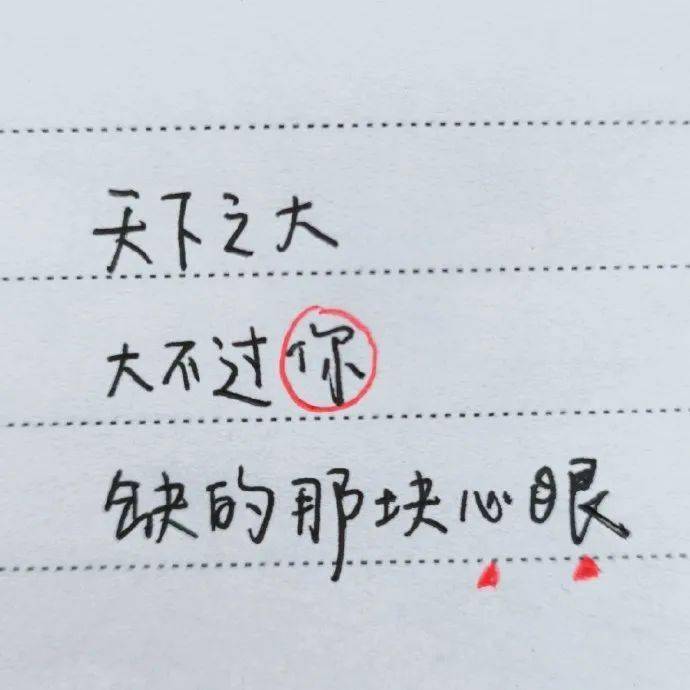 天下之大
大不过你
缺的那块心眼